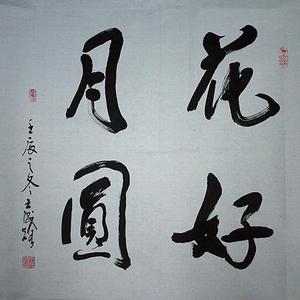 花好
月圓
壬辰之冬王